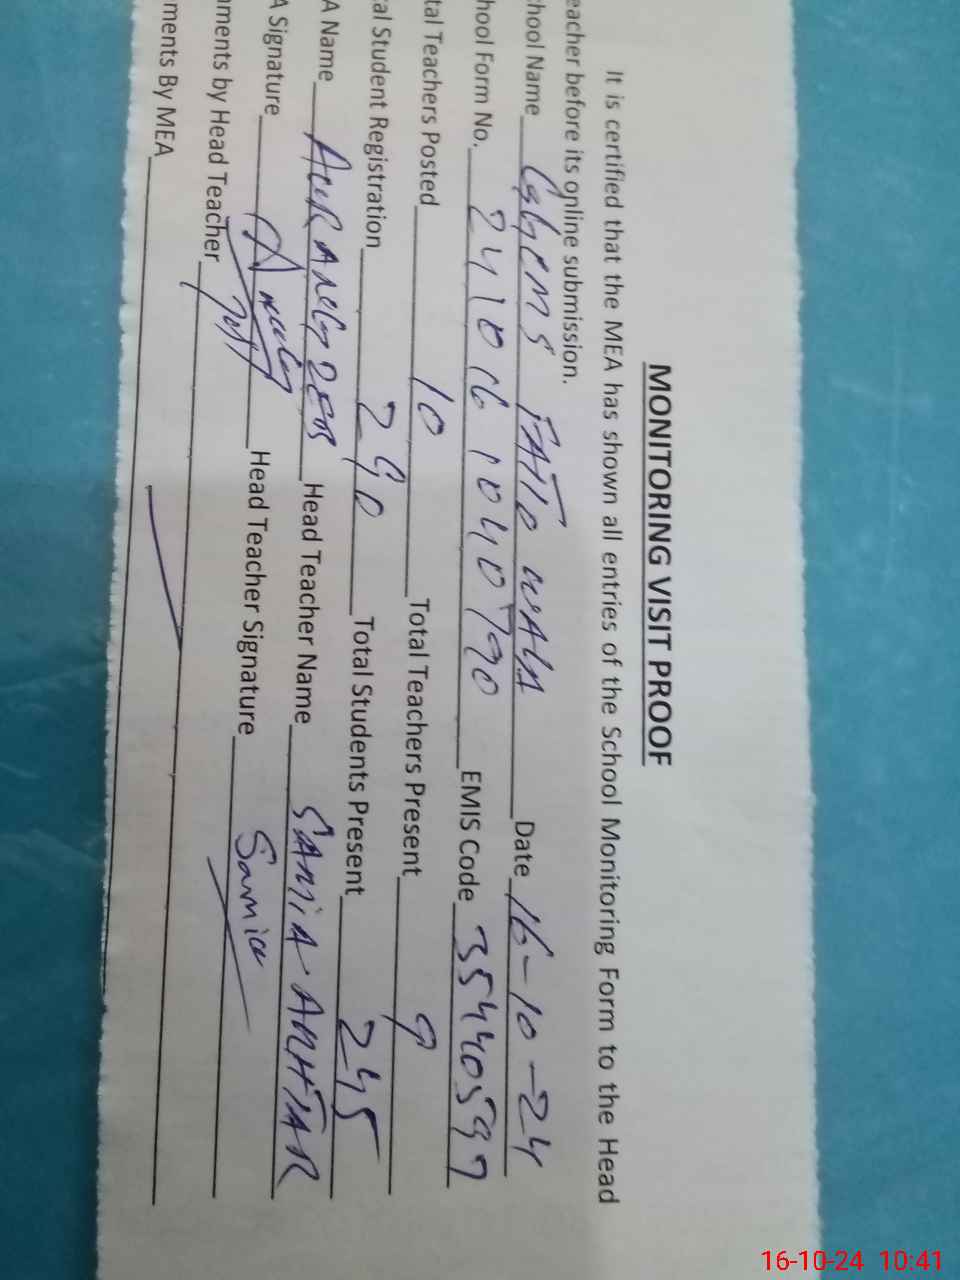 MONITORING VISIT PROOF
It is certified that the MEA has shown all entries of the School Monitoring Form to the Head
eacher before its online submission.
chool Name GGHMS FATTO WALA Date 16-10-24
hool Form No. 2410161040790 EMIS Code 35440597
tal Teachers Posted 10 Total Teachers Present 9
tal Student Registration 290 Total Students Present 245
A Name Head Teacher Name SAMIA AKHTAR
A Signature Head Teacher Signature Samia
mments by Head Teacher
ments By MEA
16-10-24 10:41